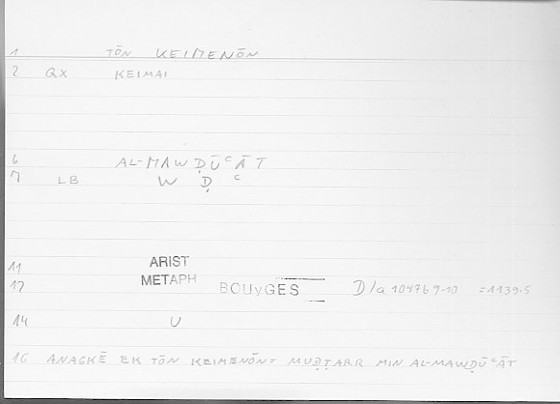 1 TŌN KEIMENŌN
2 QX KEIMAI
6 AL-MAWḌŪᶜĀT
7 LB W Ḍ ᶜ
11 ARIST
12 METAPH BOUyGES D/a 1047b9-10 =1139.5
14 U
16 ANAGKĒ EK TŌN KEIMENŌN: MUḌṬARR MIN AL-MAWḌŪᶜĀT